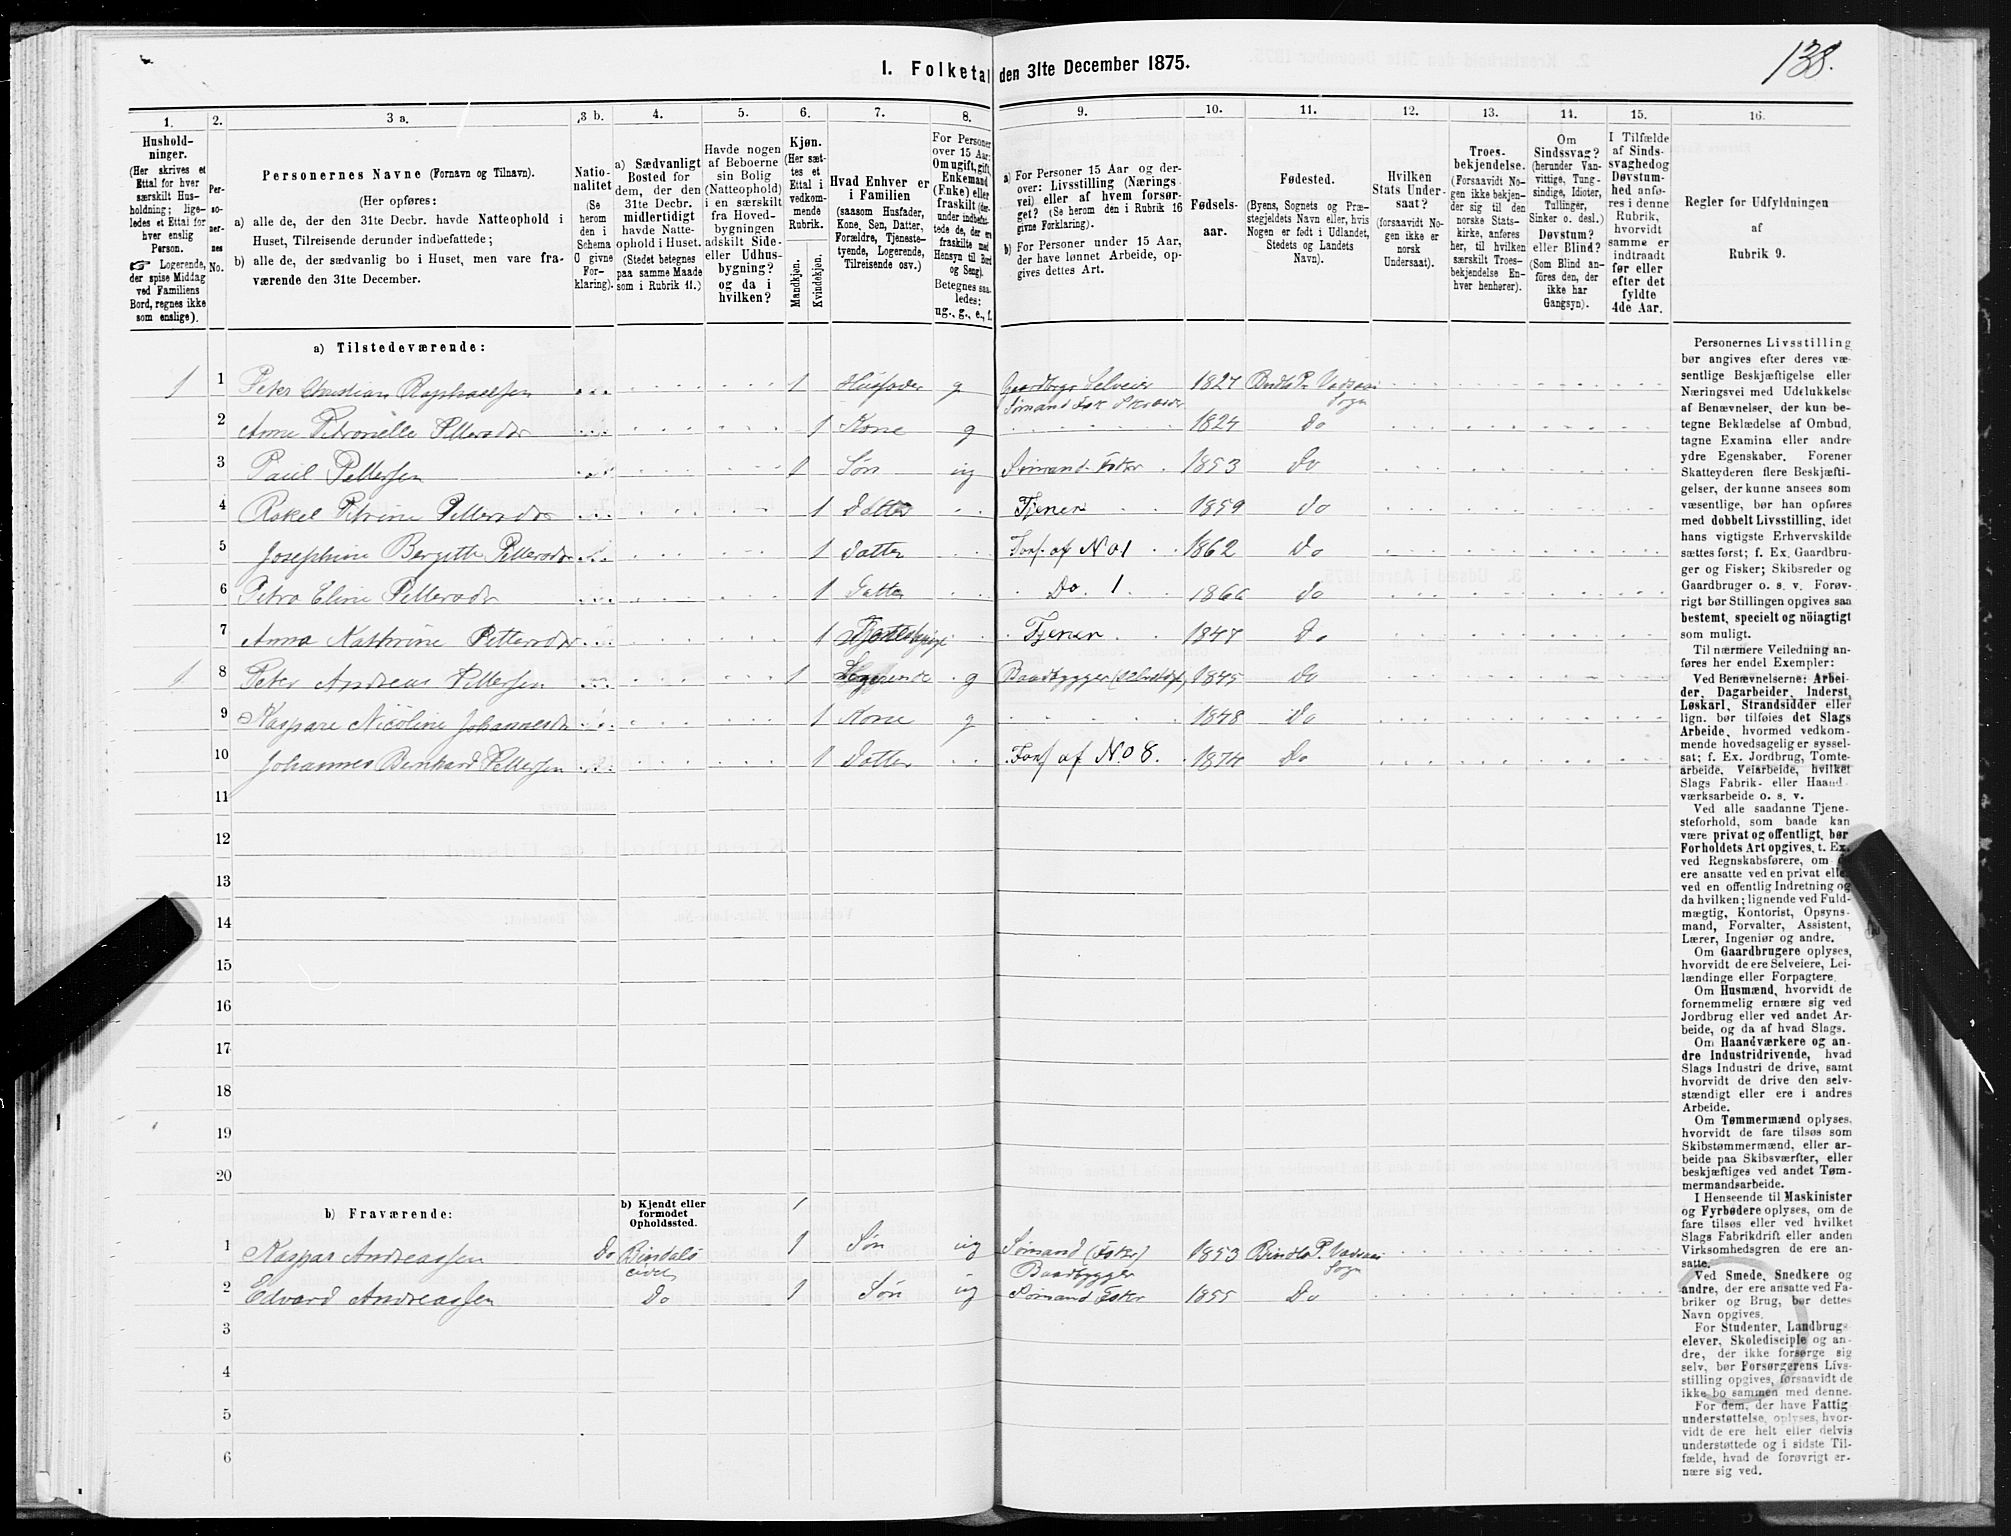 138.
1. Folketal den 31te December 1875.
1. 2. 3 a. 3 b. 4. 5. 6. 7. 8. 9. 10. 11. 12. 13. 14. 15. 16.
Hushold-
ninger.
(Her skrives et
Ettal for hver
særskilt Hus-
holdning; lige-
ledes et Ettal for
hver enslig
Person.
☞ Logerende,
der spise Middag
ved Familiens
Bord, regnes ikke
som enslige).
Per-
so-
ner-
nes
No.
Personernes Navne (Fornavn og Tilnavn).
(Her opføres:
a) alle de, der den 31te Decbr. havde Natteophold i
Huset, Tilreisende derunder indbefattede;
b) alle de, der sædvanlig bo i Huset, men vare fra-
værende den 31te December.
Natio-
nalitet
(Se
herom
den i
Schema
C givne
For-
klaring).
a) Sædvanligt
Bosted for
dem, der den
31te Decbr.
midlertidigt
havde Natte-
ophold i Huset.
(Stedet betegnes
paa samme Maade
som i Rubrik 11.)
Havde nogen
af Beboerne
sin Bolig
(Natteophold)
i en særskilt
fra Hoved-
bygningen
adskilt Side-
eller Udhus-
bygning?
og da i
hvilken?
Kjøn.
(Her sæt-
tes et
Ettal i
vedkom-
mende
Rubrik.
Mandkjøn.
Kvindekjøn.
Hvad Enhver er
i Familien
(saasom Husfader,
Kone, Søn, Datter,
Forældre, Tjeneste-
tyende, Logerende,
Tilreisende osv.)
For Personer
over 15 Aar:
Om ugift, gift,
Enkemand
(Enke) eller
fraskilt (der-
under indbefat-
tede de, der ere
fraskilte med
Hensyn til Bord
og Seng).
Betegnes saa-
ledes:
ug., g., e., f.
a) For Personer 15 Aar og der-
over: Livsstilling (Nærings
vei) eller af hvem forsør-
get? (Se herom den i Rubrik 16
givne Forklaring).
b) For Personer under 15 Aar,
der have lønnet Arbeide, op-
gives dettes Art.
Fødsels-
aar.
Fødested.
(Byens, Sognets og Præ-
stegjeldets Navn eller, hvis
Nogen er født i Udlandet,
Stedets og Landets
Navn).
Hvilken
Stats Under-
saat?
(forsaavidt No-
gen ikke er
norsk
Undersaat).
Troes-
bekjendelse.
(Forsaavidt No-
gen ikke bekjen-
der sig til den
norske Stats-
kirke, anføres
her, til hvilken
særskilt Troes-
bekjendelse En-
hver henhører).
Om
Sindssvag?
(herunder Van-
vittige, Tung-
sindige, Idioter,
Tullinger,
Sinker o. desl.)
Døvstum?
eller Blind?
(Som Blind an-
føres den, der
ikke har
Gangsyn).
I Tilfælde
af Sinds-
svaghedog
Døvstum-
hed anfø-
res i denne
Rubrik,
hvorvidt
samme er
indtraadt
før eller
efter det
fyldte
4de Aar.
Regler for Udfyldningen
af
Rubrik 9.
a) Tilstedeværende:
1 1 Peter Christian Raphaelsen 1 Husfader g Gaardbrgr Selveier 1827 Bindls P. Vadsaas Sogn
Sømand Fisk
2 Anne Petronelle Pettersdr 1 Kone g 1824 Do
3 Paul Pettersen 1 Søn ug Sømand Fisker 1853 Do
4 Rakel Petrine Pettersdr 1 Datter Tjener 1859 Do
5 Josephine Bergitte Pettersdr 1 Datter Fors. af No 1 1862 Do
6 Petra Eline Pettersdr 1 Datter Do. 1 1866 Do
7 Anna Kathrine Pettersdr 1 Tjener 1847 Do
1 8 Peter Andreas Pettersen 1 Logerende g Baadbygger 1845 Do
9 Kaspare Nicoline Johannesdr 1 Kone g 1848 Do
10 Johannes Bernhard Pettersen 1 Datter Fors af No 8. 1874 Do
11
12
13
14
15
16
17
18
19
20
b) Fraværende:
b) Kjendt eller
formodet
Opholdssted.
1
1 Kaspar Andreassen Do Bindals 1 Søn ug Sømand (Fisker) 1853 Bindls P. Vadsaas Sogn
Baadbygger
2 Edvard Andreassen Do 1 Søn ug Sømand Fisker 1855 Do
3
4
5
6
Personernes Livsstilling
bør angives efter deres væ-
sentlige Beskjæftigelse eller
Næringsvei med Udelukkelse
af Benævnelser, der kun be-
tegne Beklædelse af Ombud,
tagne Examina eller andre
ydre Egenskaber. Forener
Skatteyderen flere Beskjæfti-
gelser, der kunne ansees som
væsentlige, bør han opføres
med dobbelt Livsstilling, idet
hans vigtigste Erhvervskilde
sættes først; f. Ex. Gaardbru-
ger og Fisker; Skibsreder og
Gaardbruger o. s. v. Forøv-
rigt bør Stillingen opgives saa
bestemt, specielt og nøiagtigt
som muligt.
Til nærmere Veiledning an-
føres her endel Exempler:
Ved Benævnelserne: Arbei-
der, Dagarbeider, Inderst,
Løskarl, Strandsidder eller
lign. bør tilføies det Slags
Arbeide, hvormed vedkom-
mende hovedsagelig er syssel-
sat; f. Ex. Jordbrug, Tomte-
arbeide, Veiarbeide, hvilket
Slags Fabrik- eller Haand-
værksarbeide o. s. v.
Ved alle saadanne Tjene-
steforhold, som baade kan
være privat og offentligt, bør
Forholdets Art opgives, t. Ex.
ved Regnskabsførere, om de
ere ansatte ved en privat eller
ved en offentlig Indretning og
da hvilken; lignende ved Fuld-
mægtig, Kontorist, Opsyns-
mand, Forvalter, Assistent,
Lærer, Ingeniør og andre.
Om Gaardbrugere oplyses,
hvorvidt de ere Selveiere, Lei-
lændinge eller Forpagtere.
Om Husmænd, hvorvidt de
fornemmelig ernære sig ved
Jordbrug eller ved andet Ar-
beide, og da af hvad Slags.
Om Haandværkere og an-
dre Industridrivende, hvad
Slags Industri de drive, samt
hvorvidt de drive den selv-
stændigt eller ere i andres
Arbeide.
Om Tømmermænd oplyses,
hvorvidt de fare tilsøs som
Skibstømmermænd, eller ar-
beide paa Skibsværfter, eller
beskjæftiges ved andet Tøm-
mermandsarbeide.
I Henseende til Maskinister
og Fyrbødere oplyses, om de
fare tilsøs eller ved hvilket
Slags Fabrikdrift eller anden
Virksomhedsgren de ere an-
satte.
Ved Smede, Snedkere og
andre, der ere ansatte ved Fa-
briker og Brug, bør dettes
Navn opgives.
For Studenter, Landbrugs-
elever, Skoledisciple og an-
dre, der ikke forsørge sig
selv, bør Forsørgerens Livs-
stilling opgives, forsaavidt de
ikke bo sammen med denne.
For dem, der have Fattig-
understøttelse, oplyses, hvor-
vidt de ere helt eller delvis
understøttede og i sidste Til-
fælde, hvad de forøvrigt er-
nære sig ved.